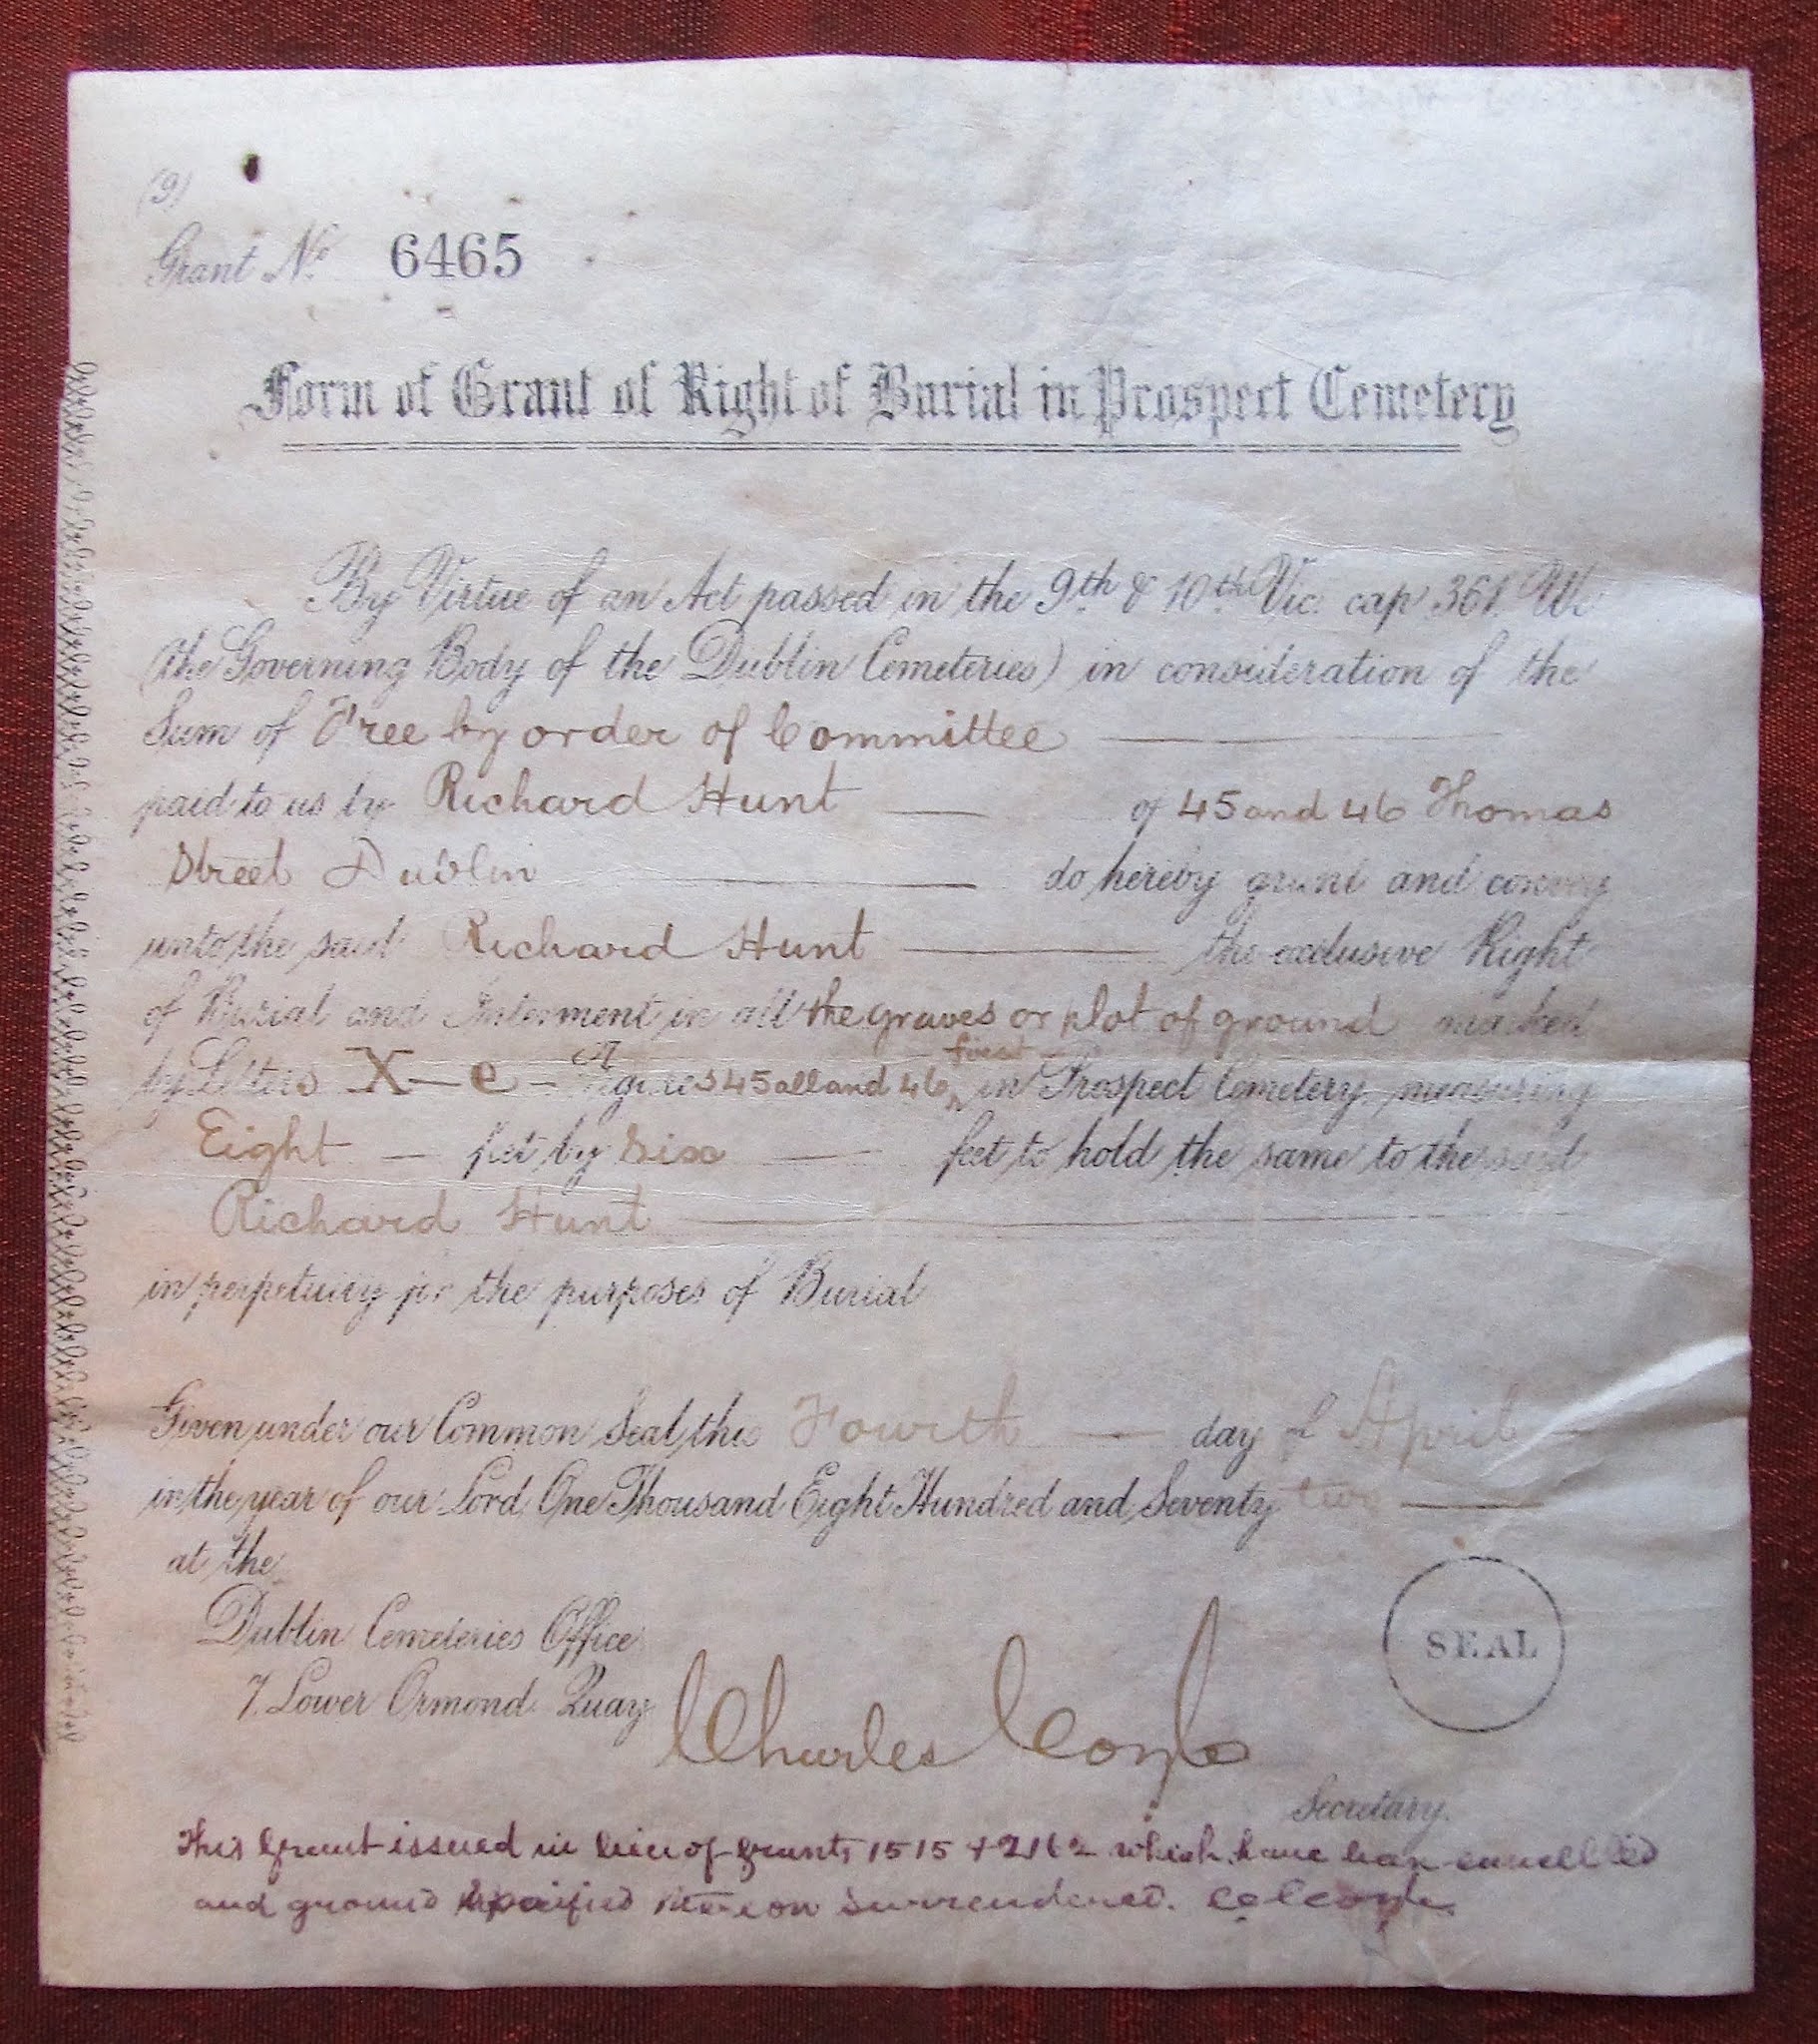 (9)
Grant No. 6465
Form of Grant of Right of Burial in Prospect Cemetery
By Virtue of an Act passed in the 9th & 10th Vic. cap 361. We
(the Governing Body of the Dublin Cemeteries) in consideration of the
Sum of Free by order of Committee
paid to us by Richard Hunt of 45 and 46 Thomas
Street Dublin do hereby grant and convey
unto the said Richard Hunt the exclusive Right
of Burial and Interment in all the graves or plot of ground marked
by Letters X – e – Figures 45 all and 46 foot in Prospect Cemetery, measuring
Eight – feet by Six feet to hold the same to the said
Richard Hunt
in perpetuity for the purposes of Burial
Given under our Common Seal this Fourth day of April
in the year of our Lord One Thousand Eight Hundred and Seventy two
at the
Dublin Cemeteries Office
7. Lower Ormond Quay
SEAL
Charles Coyle
Secretary.
This Grant issued in lieu of Grants 1515 + 2162 which have been cancelled
and ground specified thereon surrendered. CCoyle